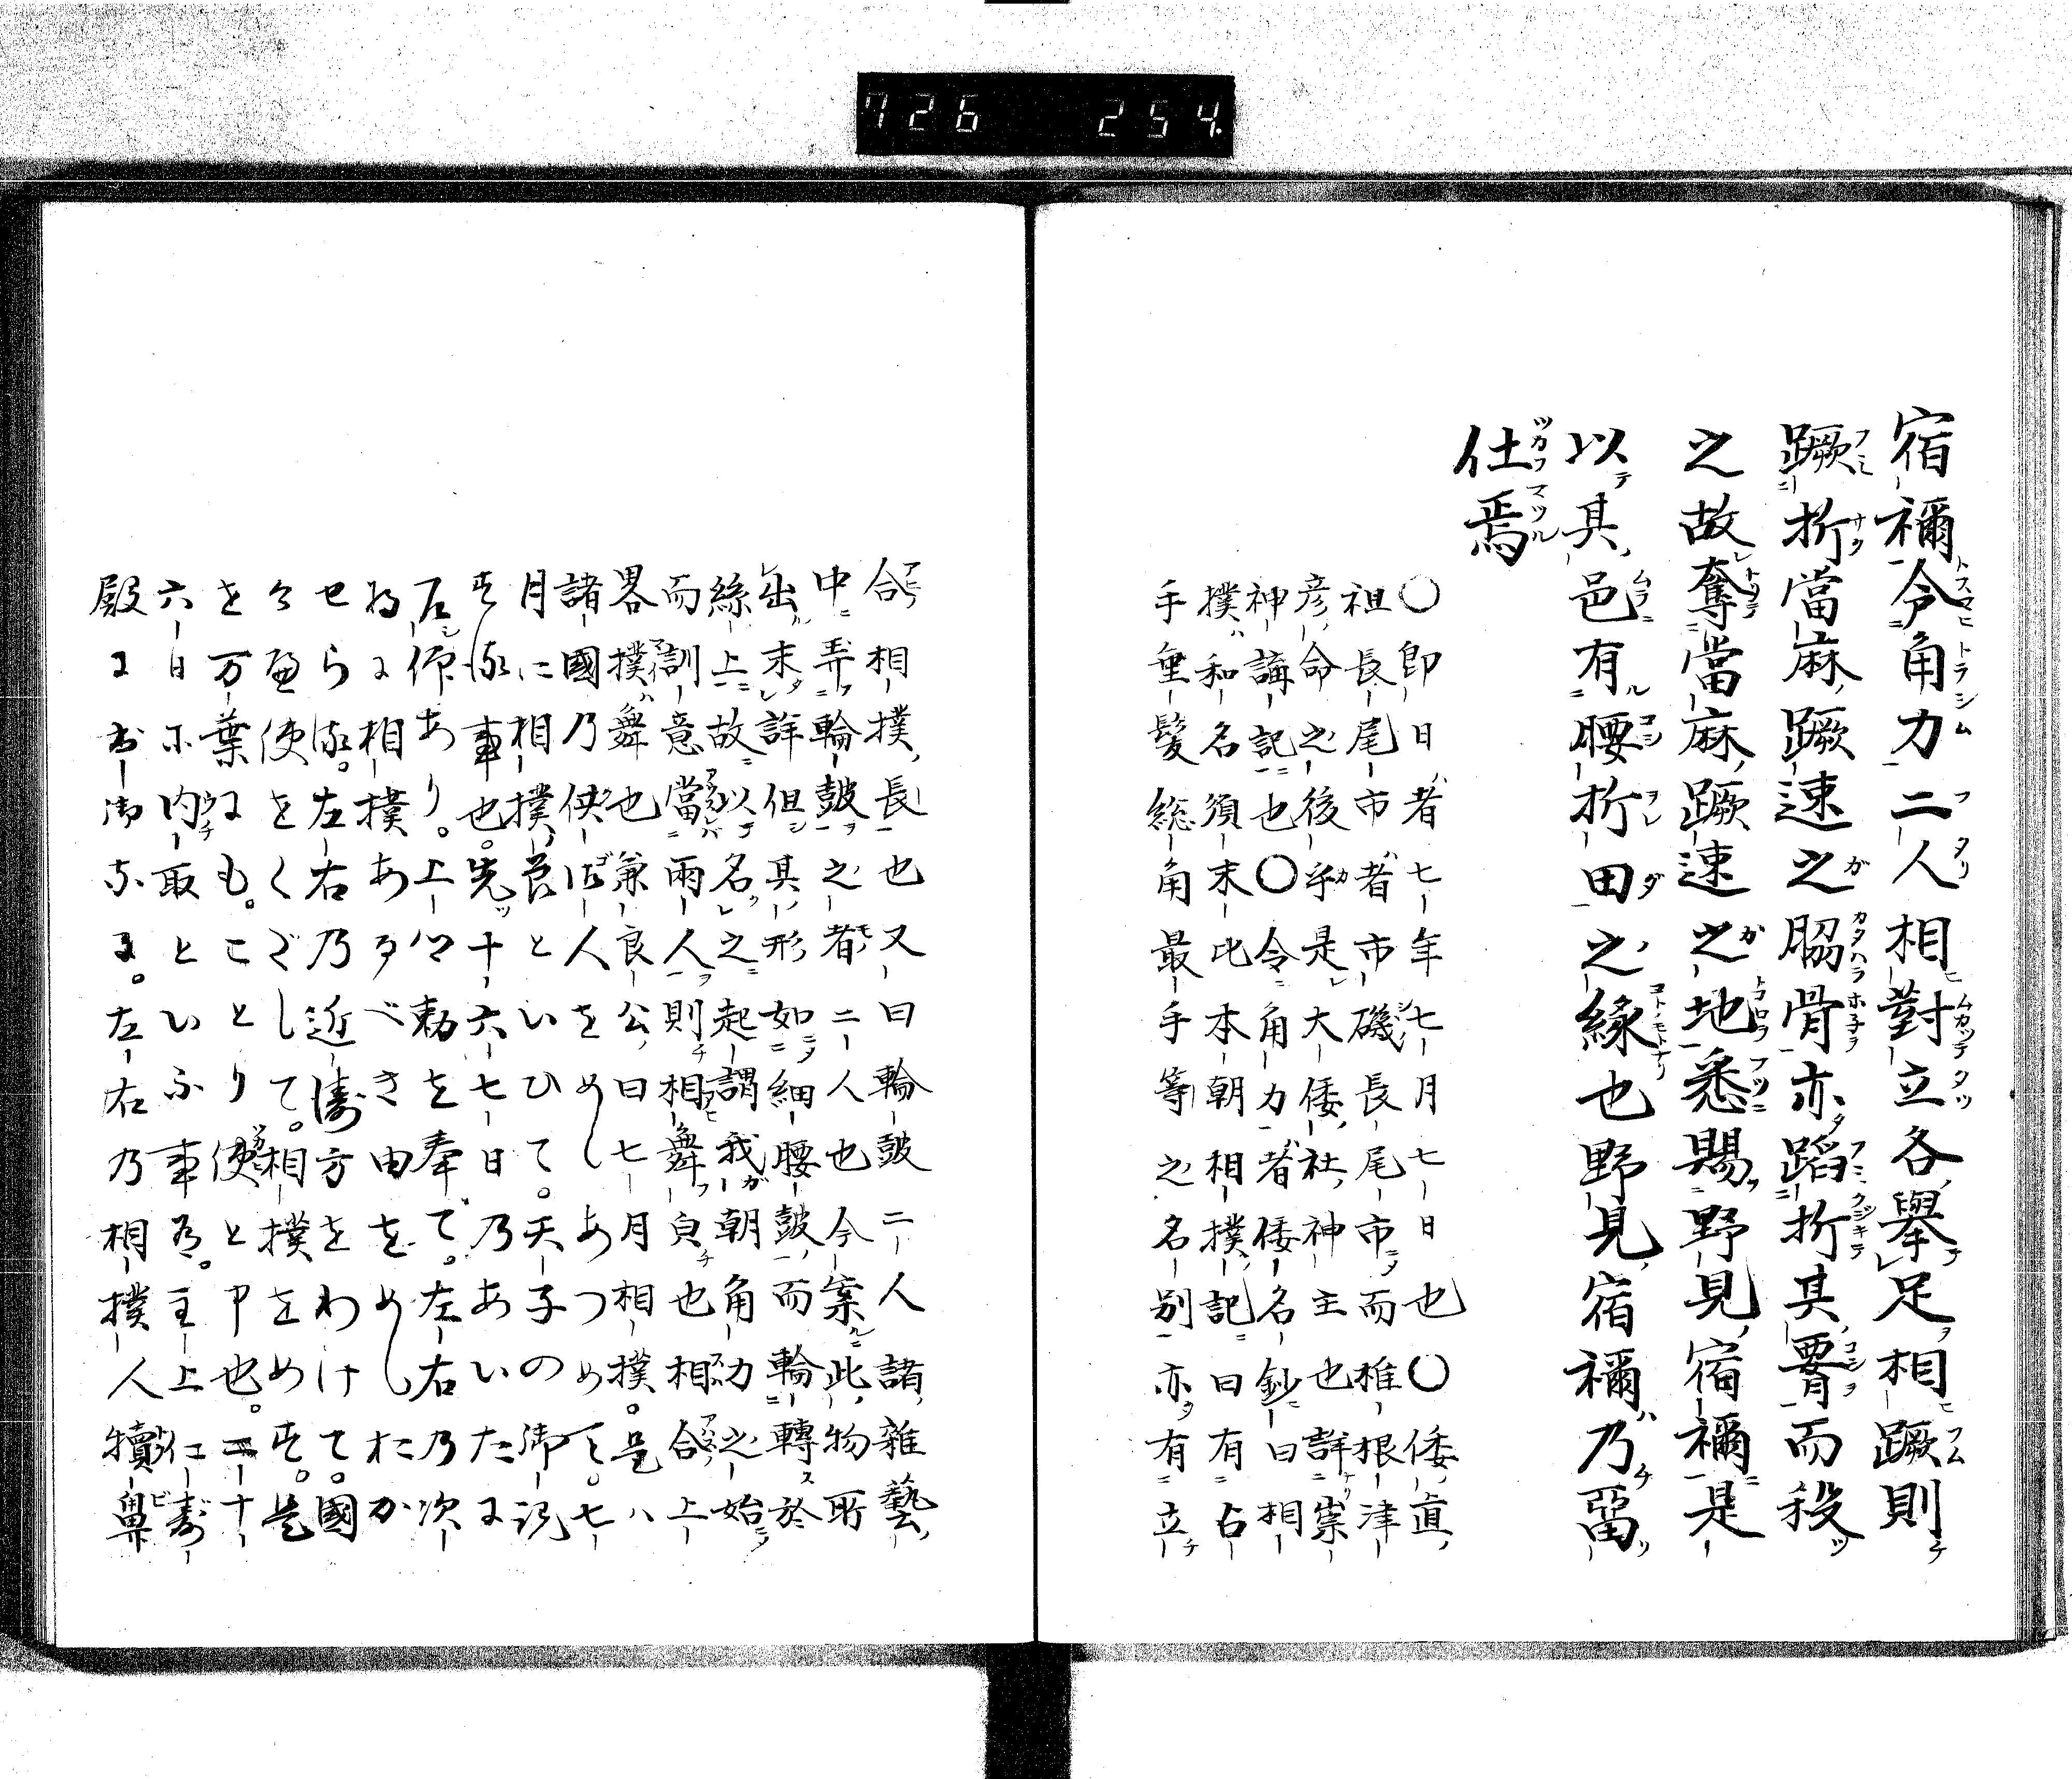 726 254.
宿禰令角力二人相對立各擧足相蹶則
蹶折當麻蹶速之脇骨亦蹈折其腰而殺
之故奪當麻蹶速之地悉賜野見宿禰是
以其邑有腰折田之緣也野見宿禰乃留
仕焉
〇即日者七年七月七日也〇倭直
祖長尾市者市磯長尾市而椎根津
彦命之後乎是大倭社神主也詳崇
神講記也〇令角力者倭名鈔曰相
撲和名須末比本朝相撲記曰有占
手垂髮総角最手等之名別亦有立
合相撲長也又曰輪皷二人諸雜藝
中弄輪皷之者二人也今案此物所
出未詳但其形如細腰皷而輪轉於
絲上故以名之起謂我朝角力之始
而訓意當兩人則相舞貞也相合上
畧撲舞也兼良公曰七月相撲。是ハ
諸國乃供御人をめしあつめて。七
月に相撲節といひて。天子の御覧
す流事也。先十六七日乃あいたに
召仰あり。上卿勅を奉て。左右乃次
将に相撲あるべき由をめしおか
せら流。左右乃近衛方をわけて。國
々へ使をくだして。相撲をめす。是
を万葉にも。ことり使と申也。二十
六日に内取といふ事有。主上仁寿
殿に出御なる。左右乃相撲人犢鼻